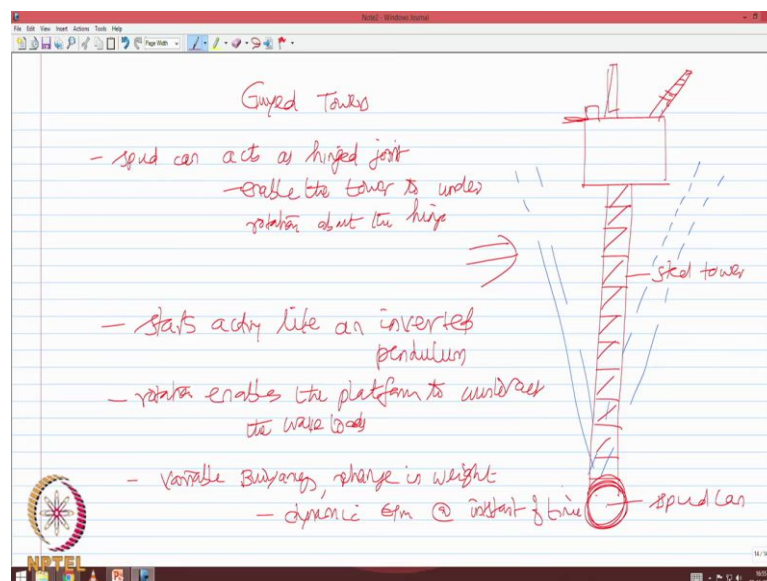 Note2 - Windows Journal
File Edit View Insert Actions Tools Help
Page Width
Guyed Towers
- spud can acts as hinged joint
- enable the tower to under
rotation about the hinge
steel tower
- starts acting like an inverted
pendulum
- rotation enables the platform to counteract
the wave loads
- Variable Buoyancy, change in weight
- dynamic Eqm @ instant of time
spud can
NPTEL